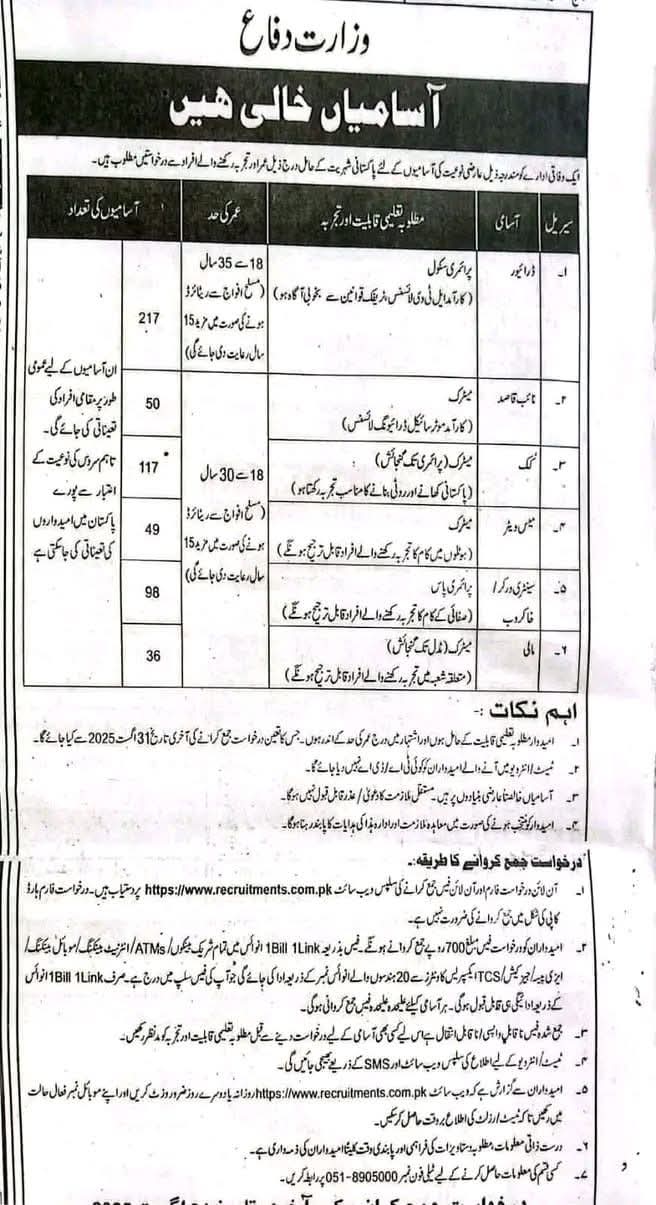 وزارت دفاع
آسامیاں خالی ھیں
ایک وفاقی ادارے کو مندرجہ ذیل عارضی نوعیت کی آسامیوں کے لئے پاکستانی شہریت کے حامل درج ذیل عمر اور تجربہ رکھنے والے افراد سے درخواستیں مطلوب ہیں۔
سیریل
آسامی
مطلوبہ تعلیمی قابلیت اور تجربہ
عمر کی حد
آسامیوں کی تعداد
۱۔
ڈرائیور
پرائمری سکول
(کارآمد ایل ٹی وی لائسنس، ٹریفک قوانین سے بخوبی آگاہ ہو)
18 سے 35 سال
(مسلح افواج سے ریٹائرڈ
ہونے کی صورت میں مزید 15
سال رعایت دی جائے گی)
217
ان آسامیوں کے لیے عمومی
طور پر مقامی افراد کی
تعیناتی کی جائے گی۔
تاہم سروس کی نوعیت کے
اعتبار سے پورے
پاکستان میں امیدواروں
کی تعیناتی کی جاسکتی ہے
۲۔
نائب قاصد
میٹرک
(کارآمد موٹر سائیکل ڈرائیونگ لائسنس)
50
18 سے 30 سال
(مسلح افواج سے ریٹائرڈ
ہونے کی صورت میں مزید 15
سال رعایت دی جائے گی)
۳۔
کک
میٹرک (پرائمری تک گنجائش)
(پاکستانی کھانے اور روٹی بنانے کا مناسب تجربہ رکھتا ہو)
117
۴۔
میس ویٹر
میٹرک
(ہوٹلوں میں کام کا تجربہ رکھنے والے افراد قابل ترجیح ہونگے)
49
۵۔
سینٹری ورکر/
خاکروب
پرائمری پاس
(صفائی کے کام کا تجربہ رکھنے والے افراد قابل ترجیح ہونگے)
98
۶۔
مالی
میٹرک (مڈل تک گنجائش)
(متعلقہ شعبہ میں تجربہ رکھنے والے افراد قابل ترجیح ہونگے)
36
اہم نکات :-
۱۔ امیدوار مطلوبہ تعلیمی قابلیت کے حامل ہوں اور اشتہار میں درج عمر کی حد کے اندر ہوں۔ جس کا تعین درخواست جمع کرانے کی آخری تاریخ 31 اگست 2025 سے کیا جائے گا۔
۲۔ ٹیسٹ/انٹرویو میں آنے والے امیدواران کو کوئی ٹی اے/ ڈی اے نہیں دیا جائے گا۔
۳۔ آسامیاں خالصتاً عارضی بنیادوں پر ہیں۔ مستقل ملازمت کا دعویٰ/ عذر قابل قبول نہیں ہوگا۔
۴۔ امیدوار کو منتخب ہونے کی صورت میں معاہدہ ملازمت اور ادارہ ہذا کی ہدایات کا پابند رہنا ہوگا۔
درخواست جمع کروانے کا طریقہ:۔
۱۔ آن لائن درخواست فارم اور آن لائن فیس جمع کرانے کی سلپس ویب سائٹ https://www.recruitments.com.pk پر دستیاب ہیں۔ درخواست فارم ہارڈ
کاپی کی شکل میں جمع کروانے کی ضرورت نہیں ہے۔
۲۔ امیدواران کو درخواست فیس مبلغ 700 روپے جمع کروانے ہونگے۔ فیس بذریعہ 1Bill 1Link انوائس میں تمام شریک بینکوں/ ATMs/ انٹرنیٹ بینکنگ/ موبائل بینکنگ/
ایزی پیسہ/ جیز کیش/ TCS ایکسپریس کاؤنٹرز سے 20 ہندسوں والے انوائس نمبر کے ذریعہ ادا کی جائے گی جو آپ کی فیس سلپ میں درج ہے۔ صرف 1Bill 1Link انوائس
کے ذریعہ ادائیگی ہی قابل قبول ہوگی۔ ہر آسامی کیلئے علیحدہ علیحدہ فیس جمع کروانی ہوگی۔
۳۔ جمع شدہ فیس ناقابل واپسی/ ناقابل انتقال ہے اس لیے کسی بھی آسامی کے لیے درخواست دینے سے قبل مطلوبہ تعلیمی قابلیت اور تجربہ کو مدنظر رکھیں۔
۴۔ ٹیسٹ/ انٹرویو کے لیے اطلاع کی سلپس ویب سائٹ اور SMS کے ذریعے بھیجی جائیں گی۔
۵۔ امیدواران سے گزارش ہے کہ ویب سائٹ https://www.recruitments.com.pk روزانہ یا دوسرے روز ضرور وزٹ کریں اور اپنے موبائل نمبر فعال حالت
میں رکھیں تاکہ ٹیسٹ/ رزلٹ کی اطلاع بروقت حاصل کر سکیں۔
۶۔ درست ذاتی معلومات، مطلوبہ دستاویزات کی فراہمی اور پابندی وقت کلیتاً امیدواران کی ذمہ داری ہے۔
۷۔ کسی قسم کی معلومات حاصل کرنے کے لیے ٹیلی فون نمبر 051-8905000 پر رابطہ کریں۔